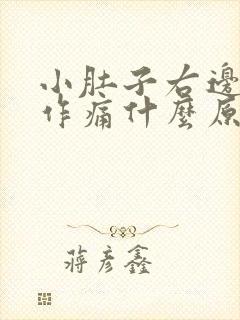 小肚子右邊
作痛什麼原
蔣彥鑫